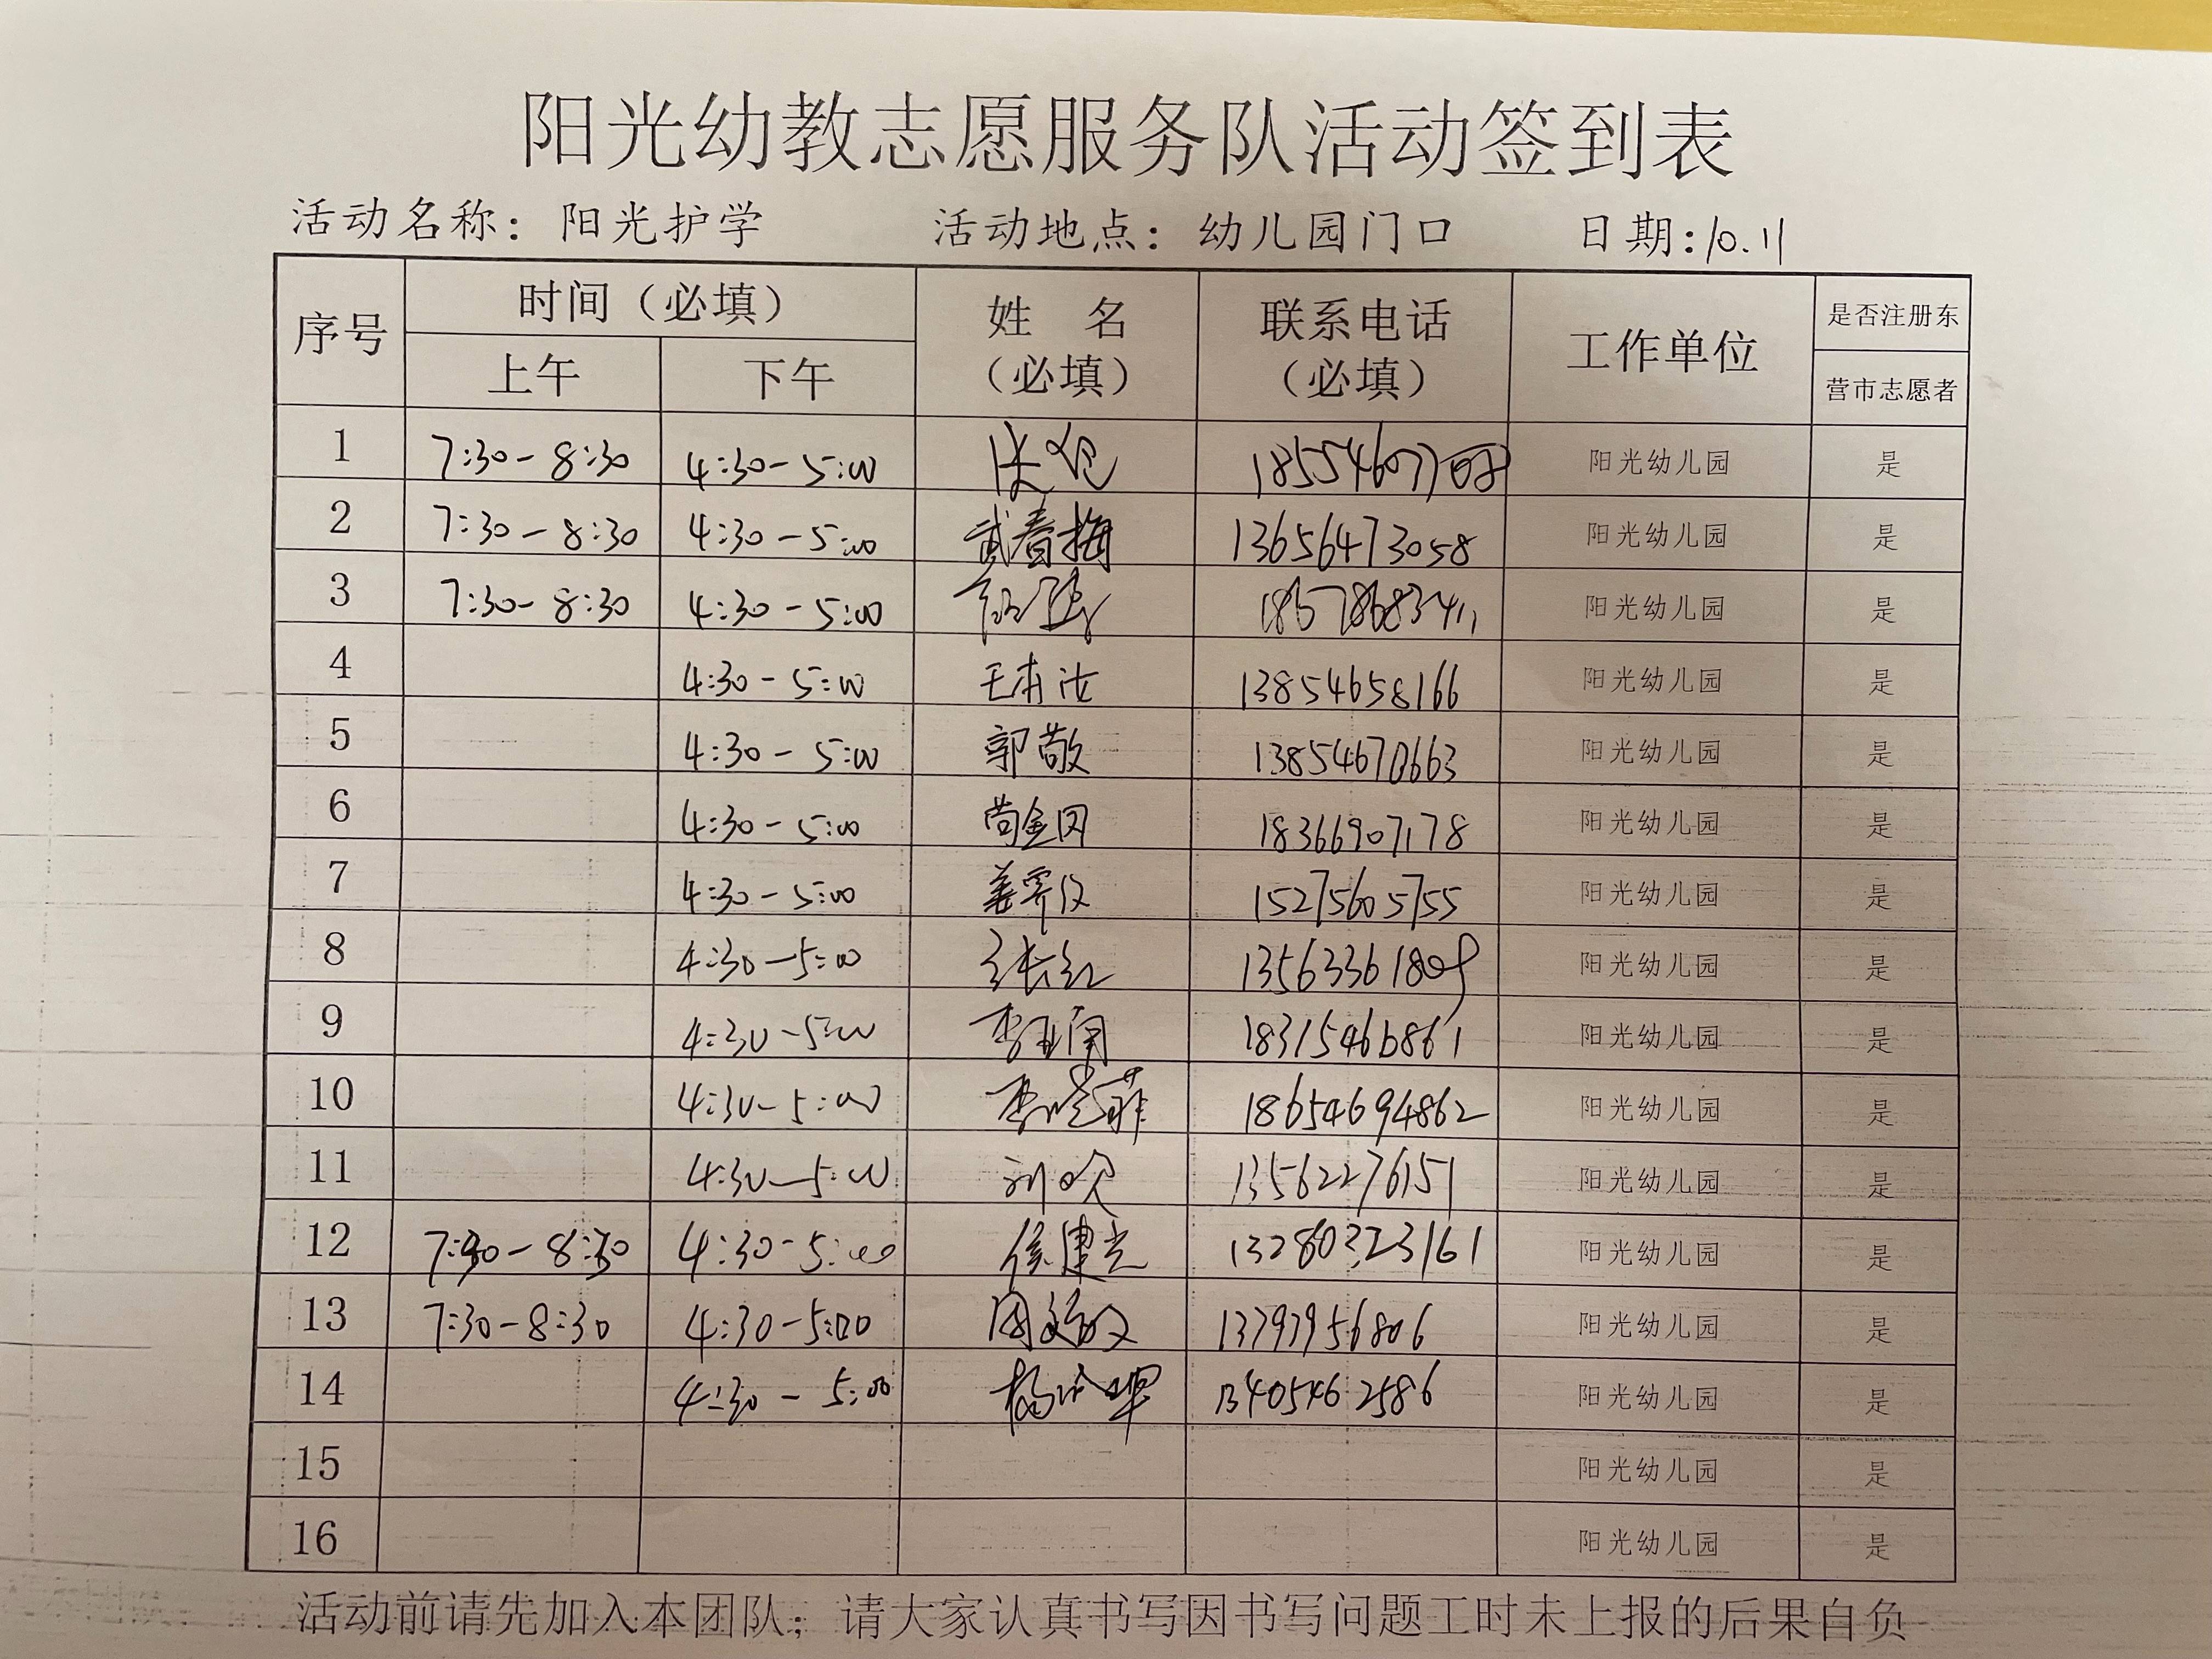 阳光幼教志愿服务队活动签到表
活动名称：阳光护学 活动地点：幼儿园门口 日期：10.11
序号 时间（必填） 姓 名（必填） 联系电话（必填） 工作单位 是否注册东
上午 下午 营市志愿者
1 7:30-8:30 4:30-5:00 18554607708 阳光幼儿园 是
2 7:30-8:30 4:30-5:00 武春梅 13656473058 阳光幼儿园 是
3 7:30-8:30 4:30-5:00 阳光幼儿园 是
4 4:30-5:00 13854658166 阳光幼儿园 是
5 4:30-5:00 郭敬 13854670663 阳光幼儿园 是
6 4:30-5:00 18366907178 阳光幼儿园 是
7 4:30-5:00 姜霁仪 15275605755 阳光幼儿园 是
8 4:30-5:00 张红 阳光幼儿园 是
9 4:30-5:00 18315466861 阳光幼儿园 是
10 4:30-5:00 李晓菲 18654694862 阳光幼儿园 是
11 4:30-5:00 13562276151 阳光幼儿园 是
12 7:30-8:30 4:30-5:00 侯建光 13280323161 阳光幼儿园 是
13 7:30-8:30 4:30-5:00 13793956806 阳光幼儿园 是
14 4:30-5:00 13405462586 阳光幼儿园 是
15 阳光幼儿园 是
16 阳光幼儿园 是
活动前请先加入本团队；请大家认真书写因书写问题工时未上报的后果自负